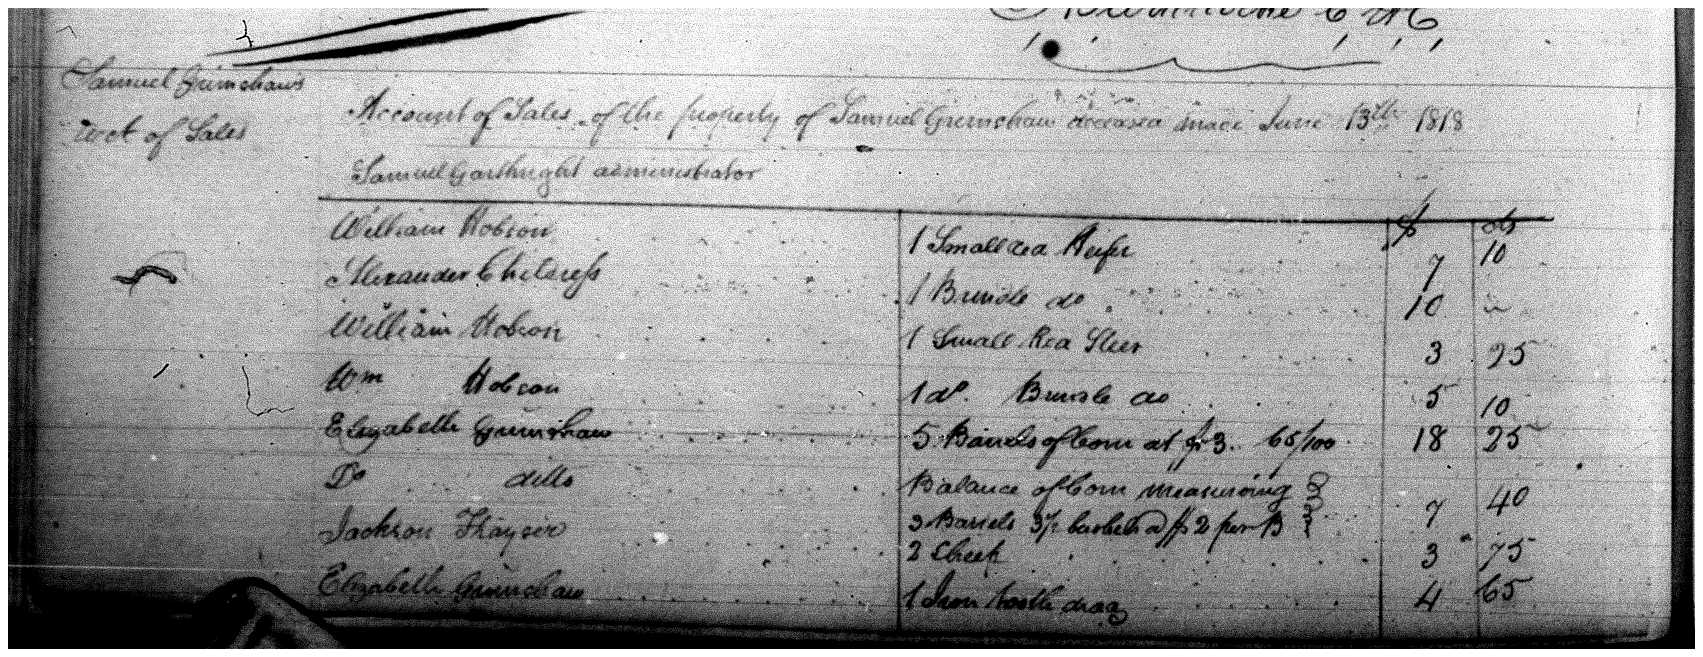 Samuel Grimshaw's
acct of Sales
Account of Sales of the property of Samuel Grimshaw deceased made June 13th 1818
Samuel Garthright administrator
$ cts
William Hobson 1 Small red Heifer 7 10
Alexander Childress 1 Brindle do 10 "
William Hobson 1 Small Red Steer 3 25
Wm Hobson 1 do. Brindle do 5 10
Elizabeth Grimshaw 5 Barrels of Corn at $3. 65/100 18 25
Do ditto Balance of Corn measuring
3 Barrels 3½ bushels @ $2 per B 7 40
Jackson 2 Sheep 3 75
Elizabeth Grimshaw 1 Iron tooth drag 4 65